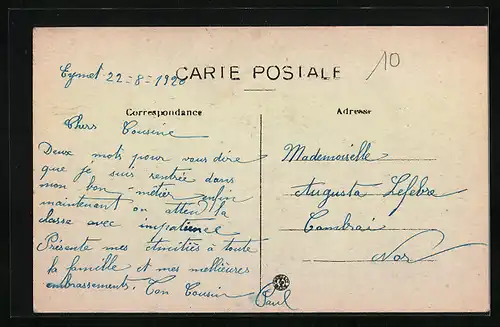 Eymet 22=8=1920
CARTE POSTALE
10
Correspondance
Adresse
Chers Cousine
Deux mots pour vous dire
que je suis rentrée dans
mon bon métier enfin
maintenant on attend la
classe avec impatience
Présente mes Amitiés à toute
la famille et mes mellieures
embrassements. Ton Cousin
Paul
Mademoiselle
Augusta Lefebre
Cambrai
Nor